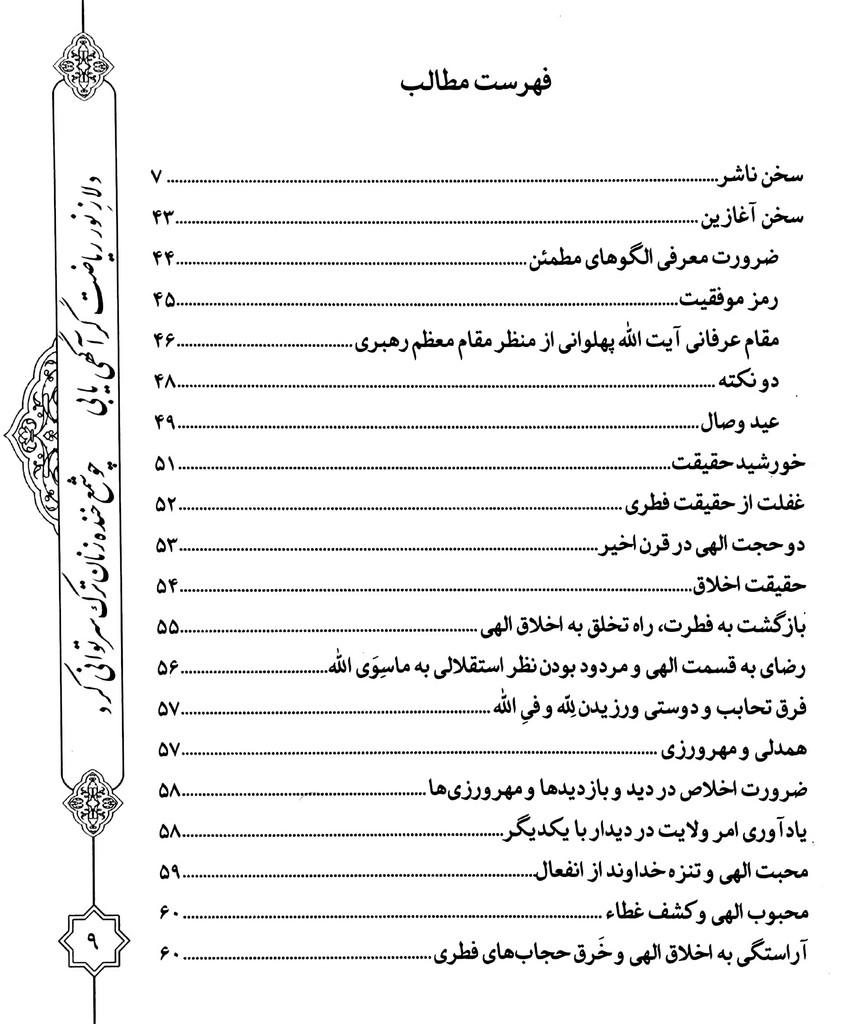 فهرست مطالب
سخن ناشر ........ ۷
سخن آغازین ........ ۴۳
ضرورت معرفی الگوهای مطمئن ........ ۴۴
رمز موفقیت ........ ۴۵
مقام عرفانی آیت الله پهلوانی از منظر مقام معظم رهبری ........ ۴۶
دو نکته ........ ۴۸
عید وصال ........ ۴۹
خورشید حقیقت ........ ۵۱
غفلت از حقیقت فطری ........ ۵۲
دو حجت الهی در قرن اخیر ........ ۵۳
حقیقت اخلاق ........ ۵۴
بازگشت به فطرت، راه تخلق به اخلاق الهی ........ ۵۵
رضای به قسمت الهی و مردود بودن نظر استقلالی به ماسِوَی الله ........ ۵۶
فرق تحابب و دوستی ورزیدن لِلّه و فیِ الله ........ ۵۷
همدلی و مهرورزی ........ ۵۷
ضرورت اخلاص در دید و بازدیدها و مهرورزی‌ها ........ ۵۸
یادآوری امر ولایت در دیدار با یکدیگر ........ ۵۸
محبت الهی و تنزه خداوند از انفعال ........ ۵۹
محبوب الهی و کشف غطاء ........ ۶۰
آراستگی به اخلاق الهی و خَرق حجاب‌های فطری ........ ۶۰
دلا ز نور ریاضت گر آگهی یابی
چو شمع خنده زنان ترک سر توانی کرد
۹